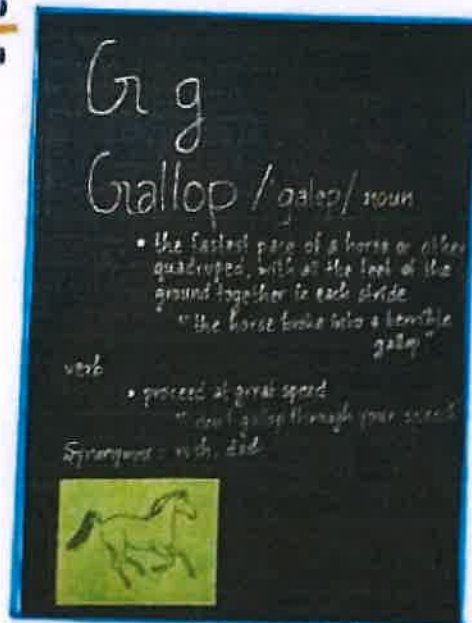 G g
Gallop /galop/ noun
• the fastest pace of a horse or other
quadruped, with all the feet of the
ground together in each stride
"the horse broke into a terrible
gallop"
verb
• proceed at great speed
"don't gallop through your speech"
Synonyms: rush,